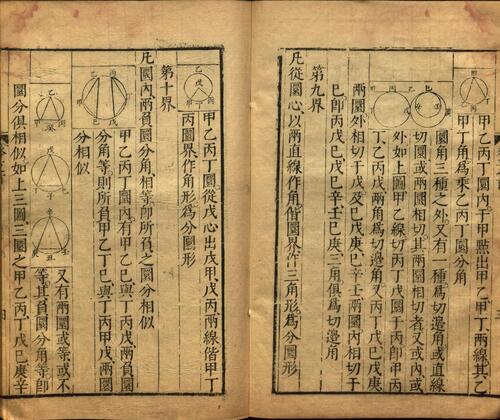 甲乙丙丁圜內于甲點出甲乙甲丁兩線其乙
甲丁角爲乘乙丙丁圜分角
圜角三種之外又有一種爲切邊角或直線
切圜或兩圜相切其兩圜相切者又或內或
外如上圖甲乙線切丙丁戊圜于丙即甲丙
丁乙丙戊兩角爲切邊角又丙丁戊己戊庚
兩圜外相切于戊及己戊庚己辛壬兩圜內相切于
己即丙戊己戊己辛壬己庚三角俱爲切邊角
第九界
凡從圜心以兩直線作角偕圜界作三角形爲分圜形
甲乙丙丁圜從戊心出戊甲戊丙兩線偕甲丁
丙圜界作角形爲分圜形
第十界
凡圜內兩負圜分角相等即所負之圜分相似
甲乙丙丁圜內有甲乙己與丁丙戊兩負圜
分角等則所負甲乙丁己與丁丙甲戊兩圜
分相似
又有兩圜或等或不
等其負圜分角等即
圜分俱相似如上三圖三圜之甲乙丙丁戊己庚辛